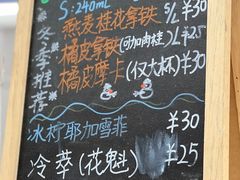 冬季推荐
S:240ml
燕麦桂花拿铁 S/L ¥30
橘皮拿铁(可加肉桂) S/L ¥25
橘皮摩卡(仅大杯) ¥30
冰柠耶加雪菲 ¥30
冷萃(花魁) ¥25